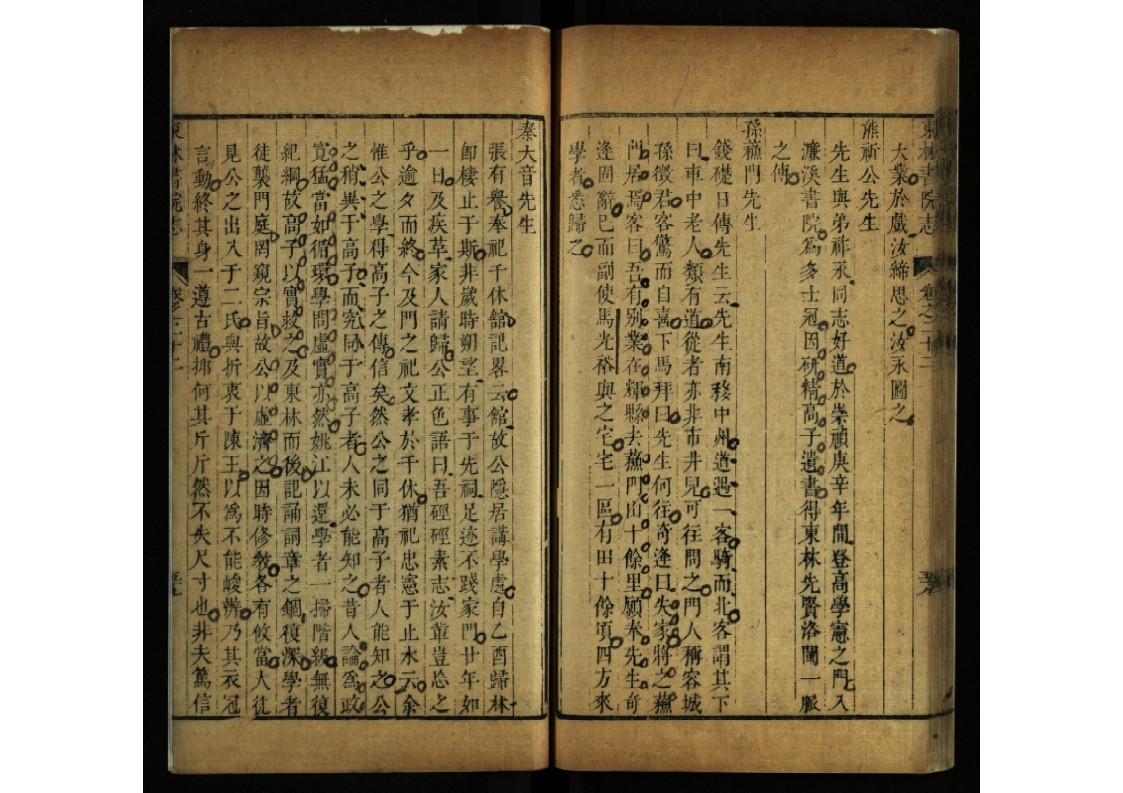 東林書院志 卷之二十二
大業於戲汝締思之汝永圖之
熊祈公先生
先生與弟祚承同志好道於崇禎庚辛年間登高學憲之門入
濂溪書院為多士冠因研精高子遺書得東林先賢洛閩一脈
之傳
孫蘓門先生
錢礎日傳先生云先生南移中州道遇一客騎而北客謂其下
曰車中老人類有道從者亦非市井兒可往問之門人稱容城
孫徵君客驚而自喜下馬拜曰先生何往奇逢曰失家將之蘓
門居焉客曰吾有别業在輝縣去蘓門山十餘里願奉先生奇
逢固辭已而副使馬光裕與之宅宅一區有田十餘頃四方來
學者悉歸之
秦大音先生
張有譽奉祀千休舘記畧云舘故公隱居講學處自乙酉歸林
卽棲止于斯非歲時朔望有事于先祠足迹不踐家門廿年如
一日及疾革家人請歸公正色語曰吾硜硜素志汝軰豈忘之
乎逾夕而終今及門之祀文孝於千休猶祀忠憲于止水云余
惟公之學得高子之傳信矣然公之同于高子者人能知之公
之稍異于高子而究同于高子者人未必能知之昔人論為政
寛猛當如循環學問虛實亦然姚江以還學者一掃階級無復
紀綱故高子以實救之及東林而後記誦詞章之錮復深學者
徒襲門庭罔窺宗旨故公以虛濟之因時修敎各有攸當人徒
見公之出入于二氏與折衷于陳王以為不能峻辨乃其衣冠
言動終其身一遵古禮抑何其斤斤然不失尺寸也非夫篤信
東林書院志 卷之二十二